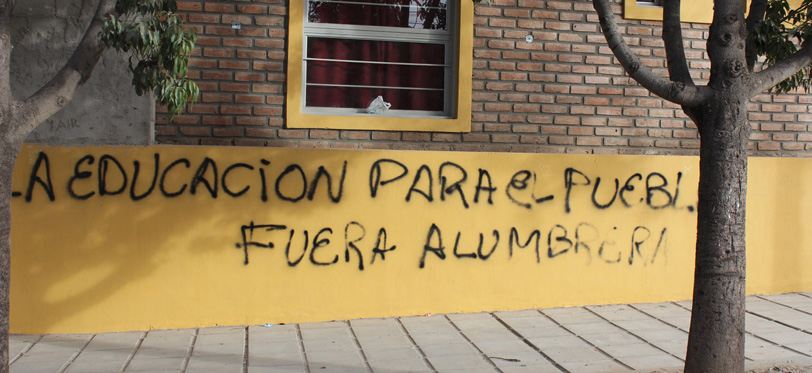 LA EDUCACiON PARA eL PUEBL
FUERA ALUMBRERA